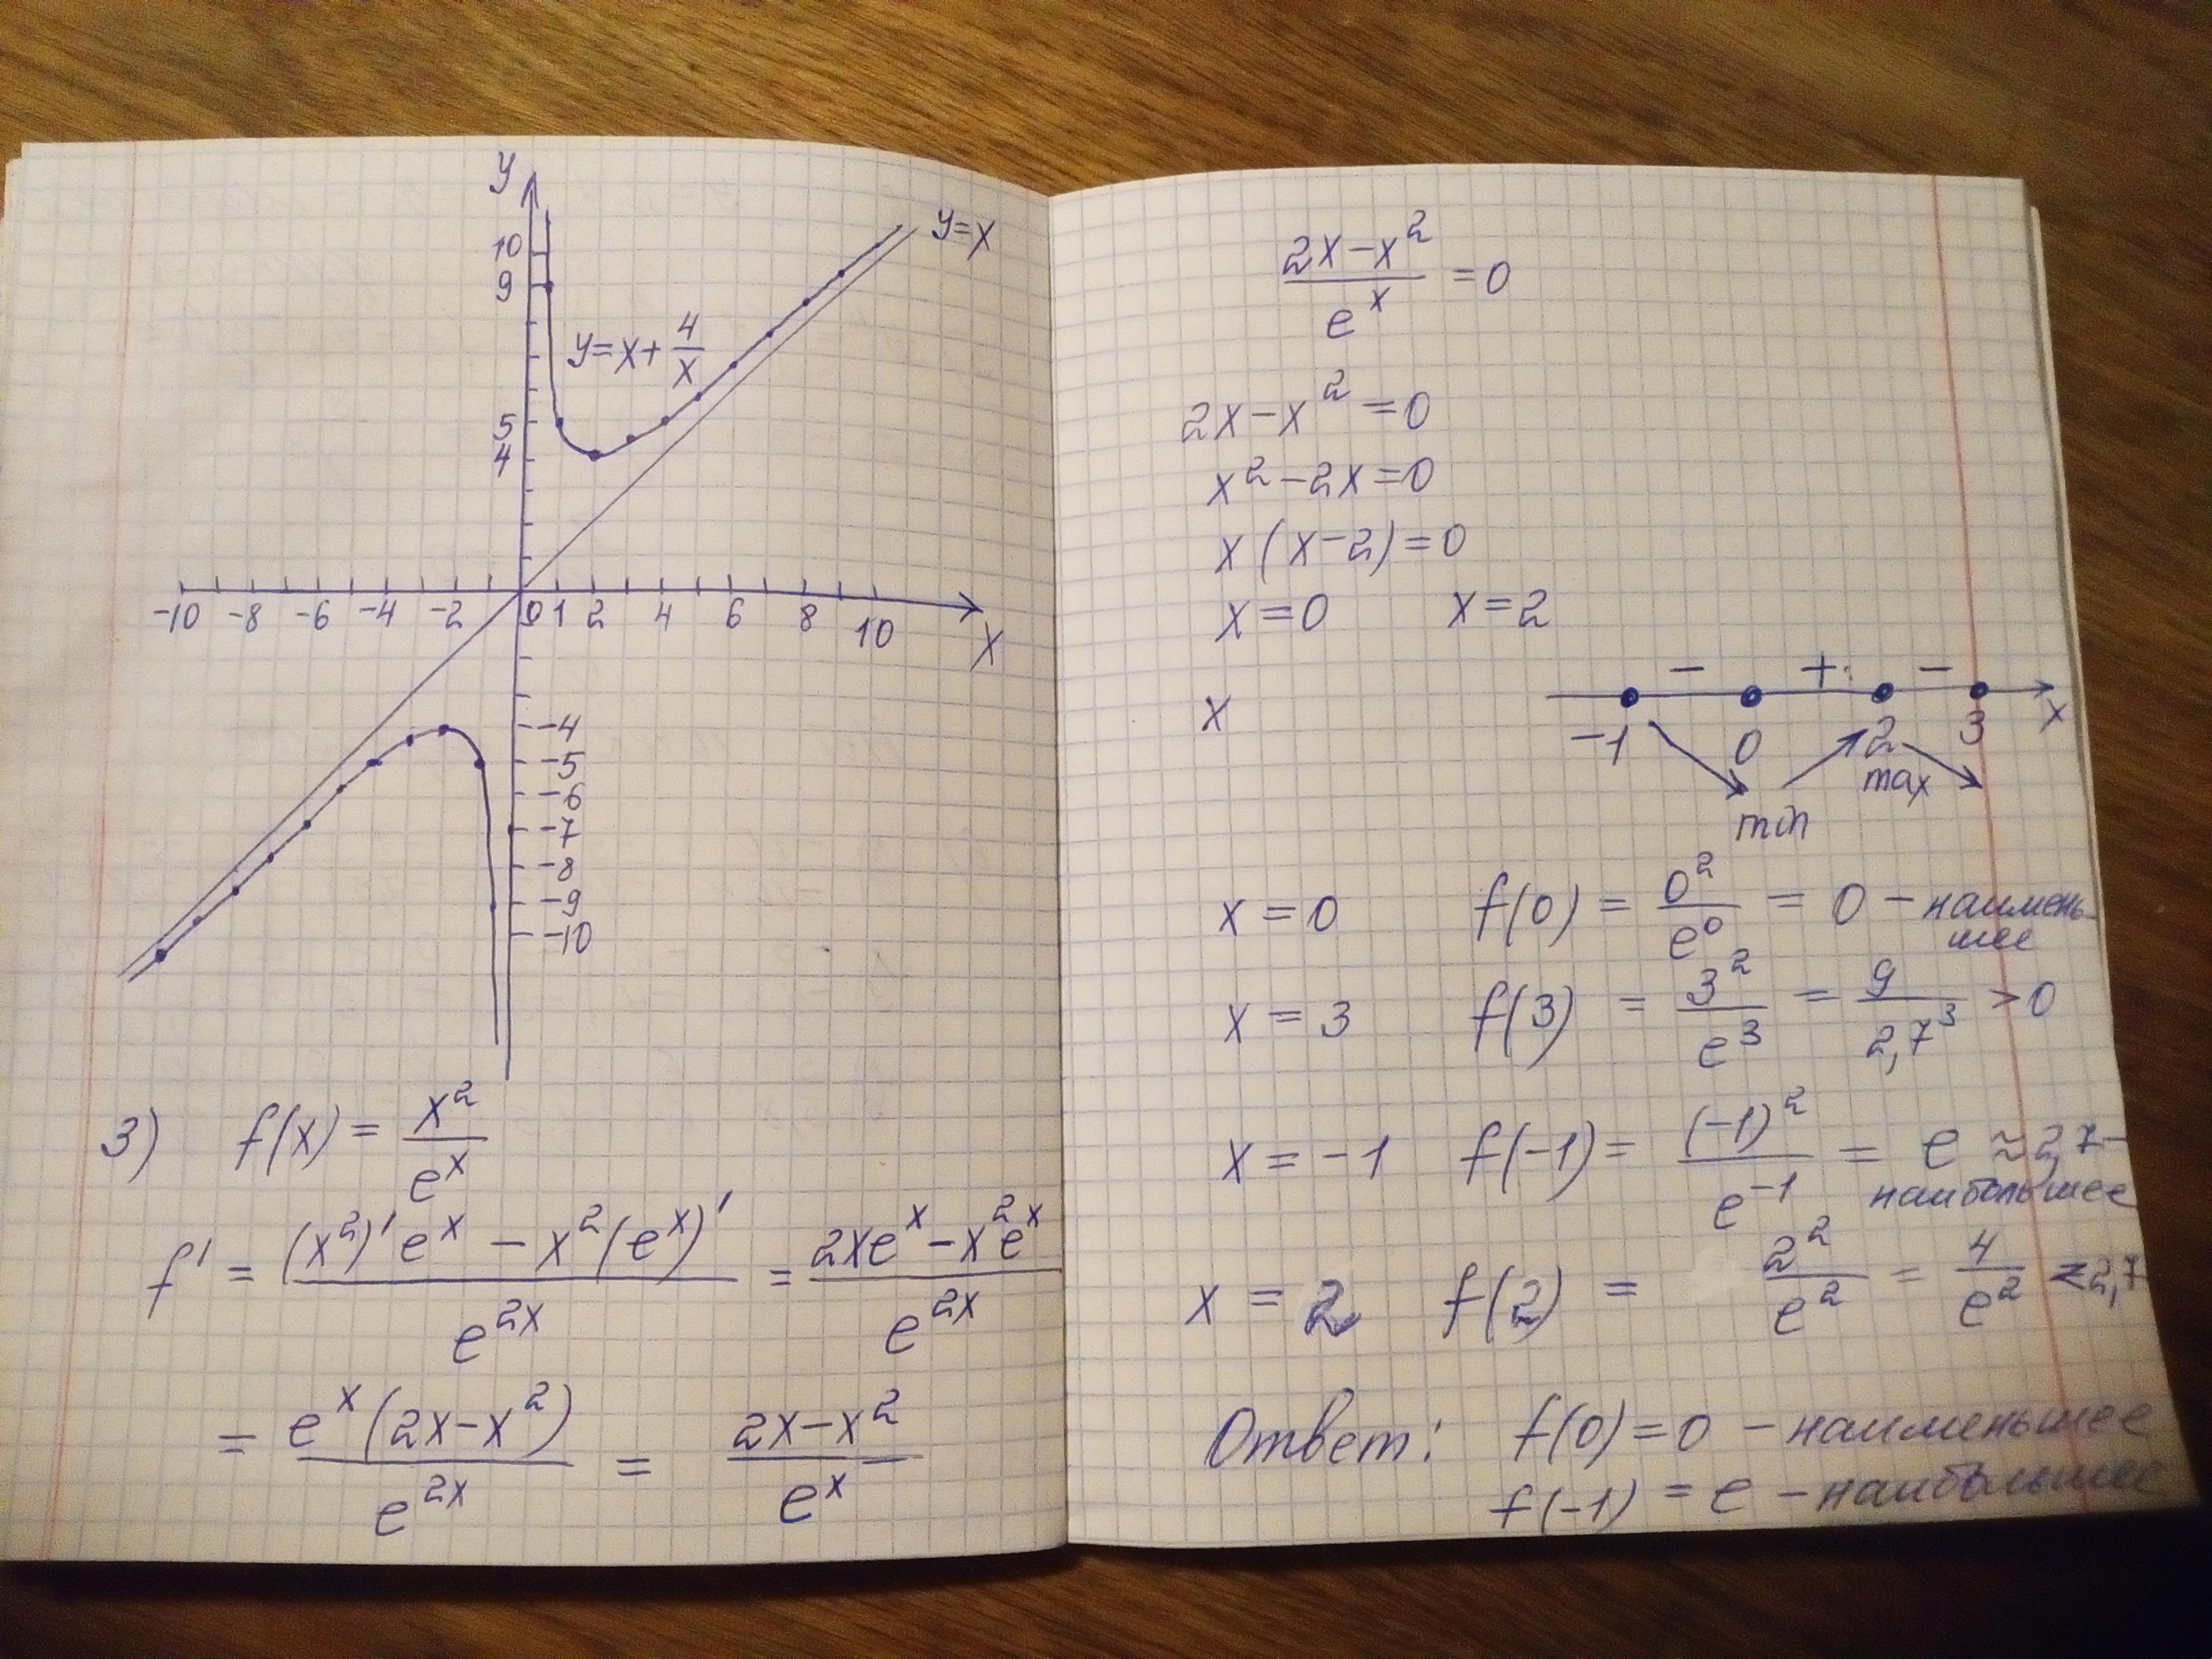 y
10
9
y=x
y=x+4/x
5
4
-10 -8 -6 -4 -2 0 1 2 4 6 8 10
x
-4
-5
-6
-7
-8
-9
-10
3) f(x) = x²/e^x
f' = ((x²)'e^x - x²(e^x)')/e^(2x) = (2xe^x - x²e^x)/e^(2x)
= e^x(2x-x²)/e^(2x) = (2x-x²)/e^x -
(2x-x²)/e^x = 0
2x-x² = 0
x²-2x=0
x(x-2)=0
x=0 x=2
- + -
x
-1 0 2 3 x
max
min
x = 0 f(0) = 0²/e⁰ = 0 - наимень
шее
x = 3 f(3) = 3²/e³ = 9/2,7³ > 0
x = -1 f(-1) = (-1)²/e⁻¹ = e ≈ 2,7-
наибольшее
x = 2 f(2) = 2²/e² = 4/e² < 2,7
Ответ: f(0)=0 - наименьшее
f(-1) = e - наибольшее